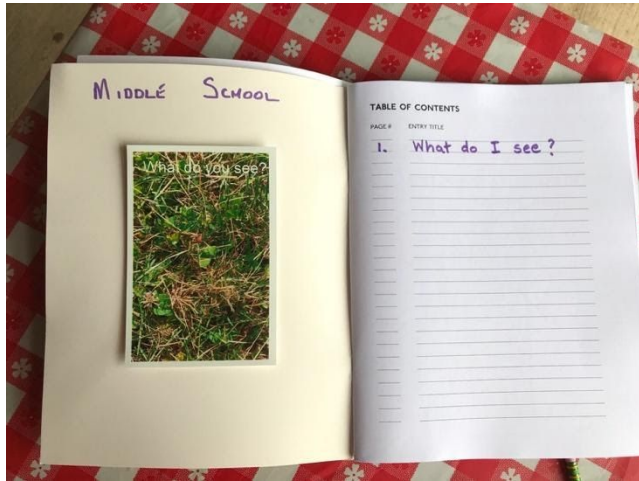 MIDDLÉ SCHOOL
What do you see?
TABLE OF CONTENTS
PAGE # ENTRY TITLE
1. What do I see?